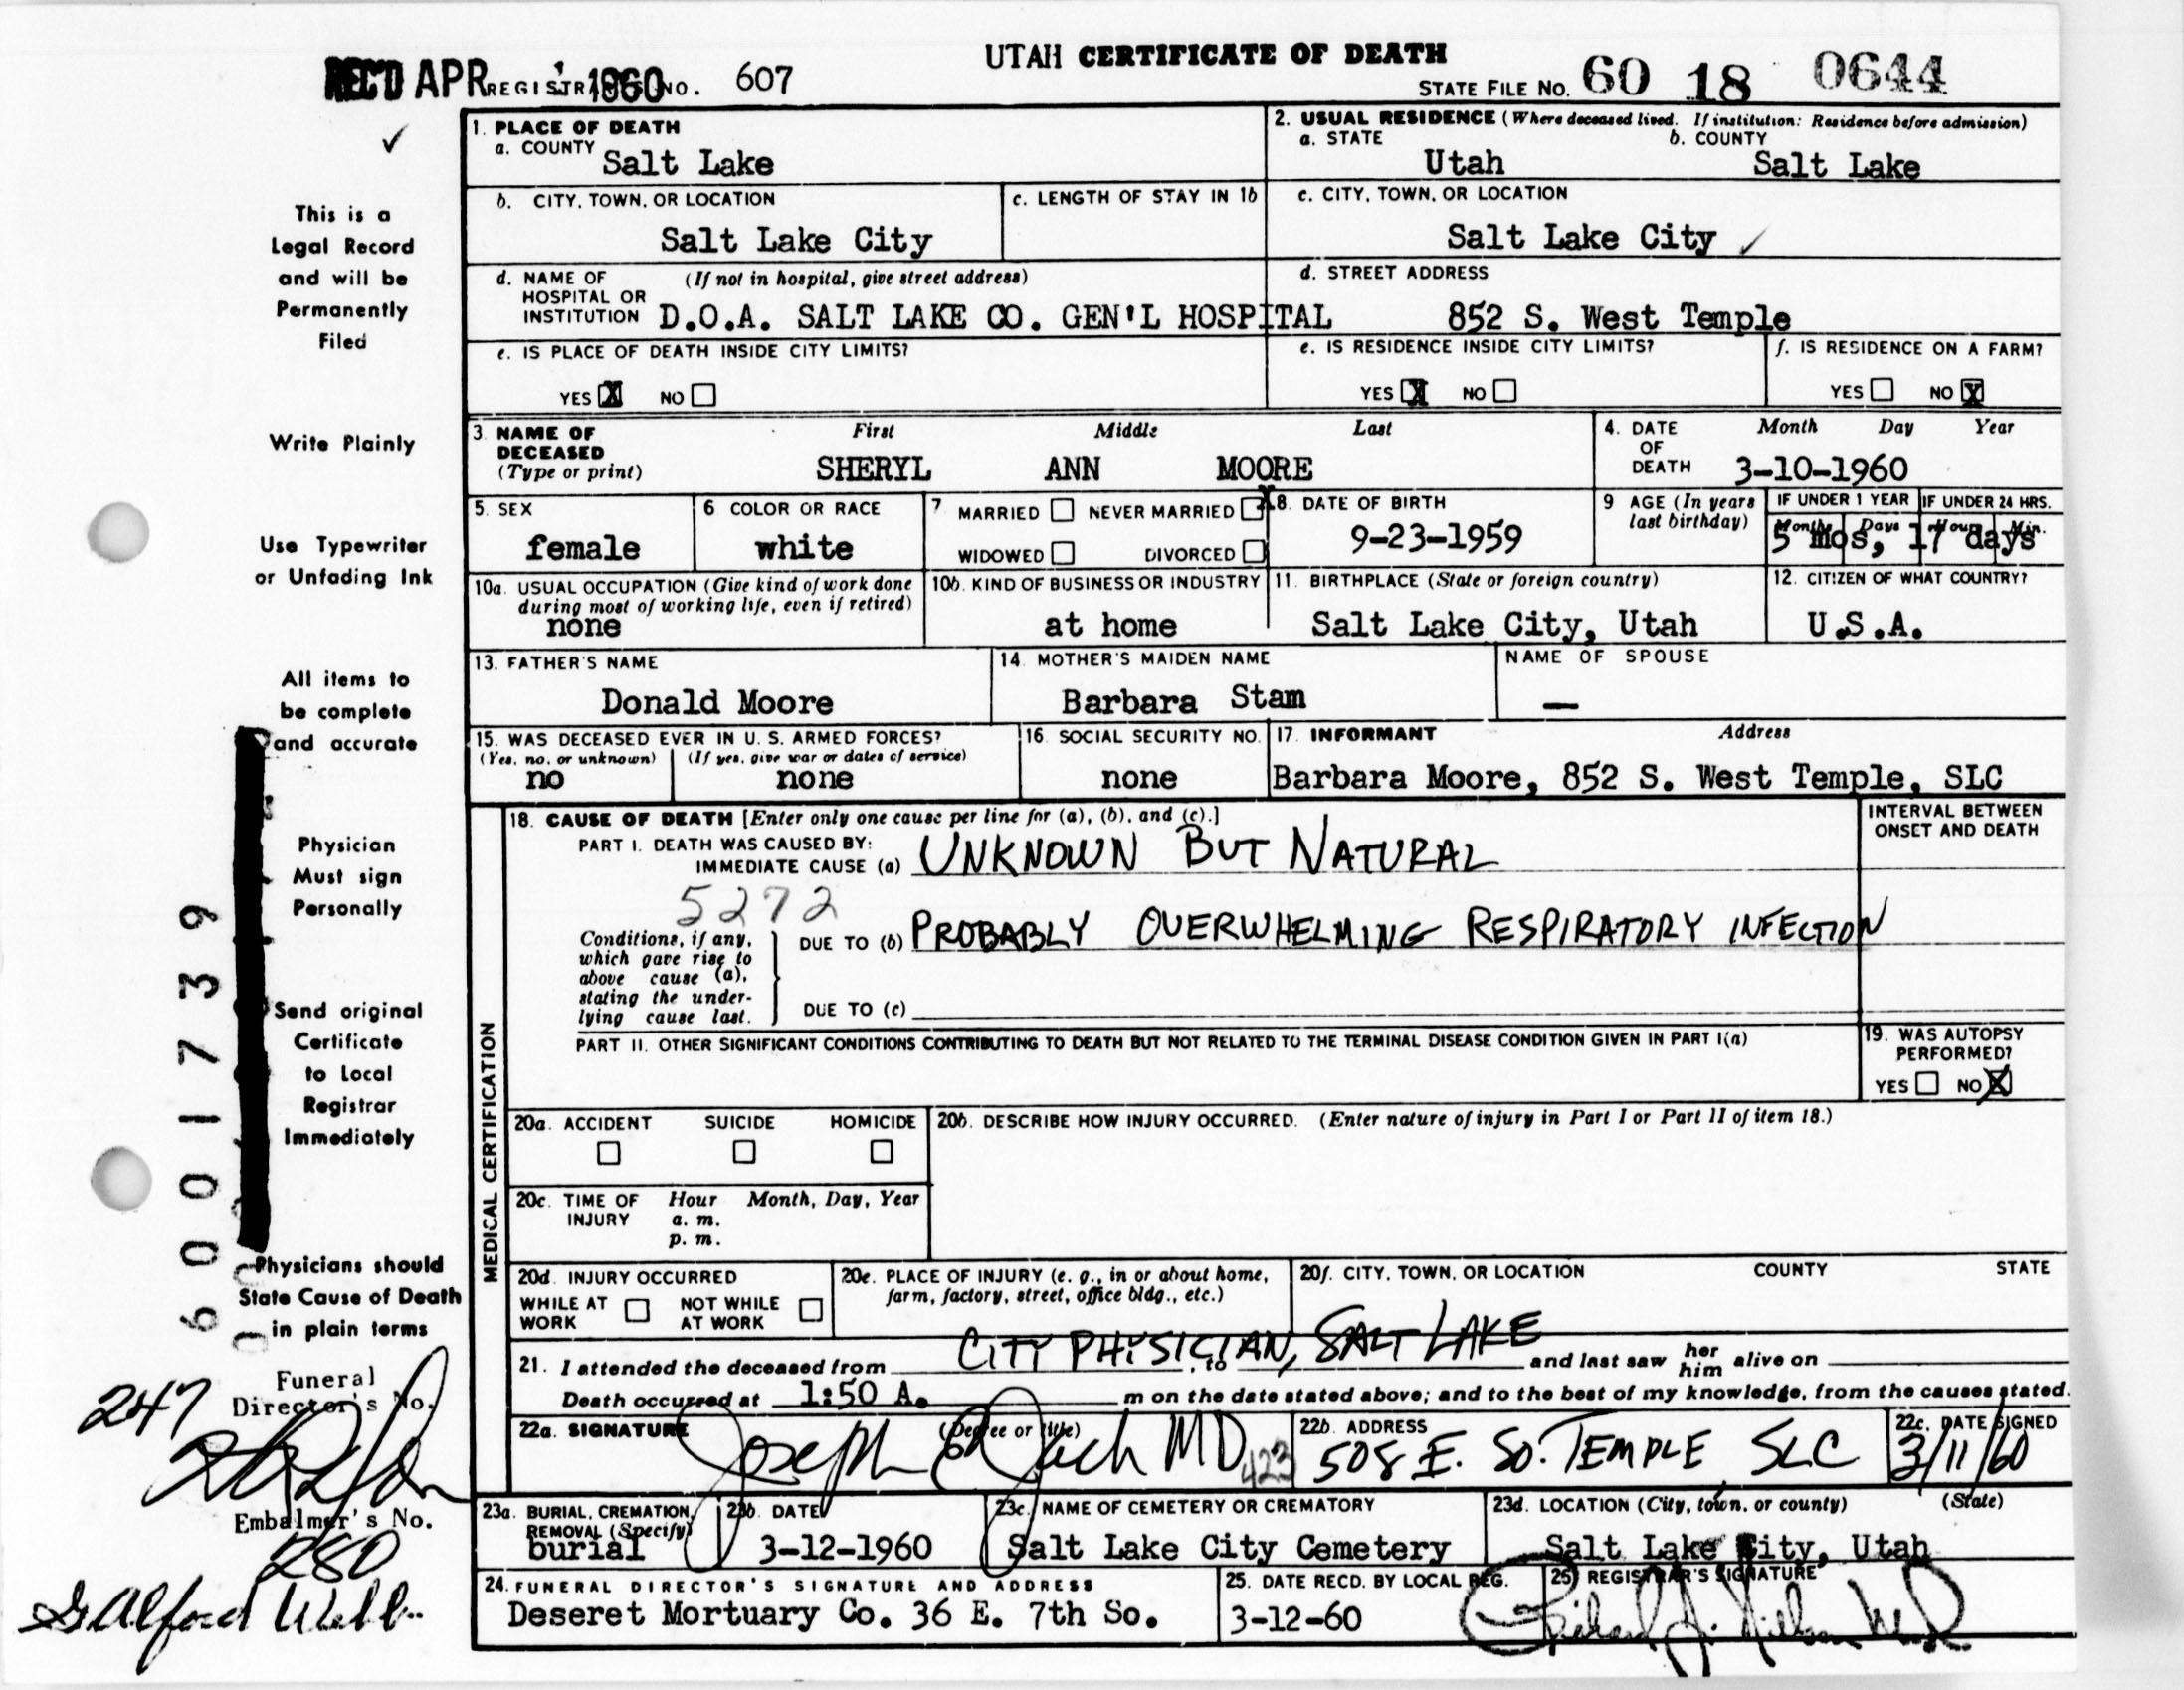 UTAH CERTIFICATE OF DEATH
REC'D APR 1960 REGISTRAR'S NO. 607
STATE FILE NO. 60 18 0644
✓
This is a
Legal Record
and will be
Permanently
Filed
Write Plainly
Use Typewriter
or Unfading Ink
All items to
be complete
and accurate
Physician
Must sign
Personally
Send original
Certificate
to Local
Registrar
Immediately
Physicians should
State Cause of Death
in plain terms
6001739
Funeral
Director's No.
247
Embalmer's No.
280
1. PLACE OF DEATH
a. COUNTY
Salt Lake
2. USUAL RESIDENCE (Where deceased lived. If institution: Residence before admission)
a. STATE b. COUNTY
Utah Salt Lake
b. CITY, TOWN, OR LOCATION
Salt Lake City
c. LENGTH OF STAY IN 1b
c. CITY, TOWN, OR LOCATION
Salt Lake City ✓
d. NAME OF (If not in hospital, give street address)
HOSPITAL OR
INSTITUTION D.O.A. SALT LAKE CO. GEN'L HOSPITAL
d. STREET ADDRESS
852 S. West Temple
e. IS PLACE OF DEATH INSIDE CITY LIMITS?
YES X NO
e. IS RESIDENCE INSIDE CITY LIMITS?
YES X NO
f. IS RESIDENCE ON A FARM?
YES NO X
3. NAME OF DECEASED
(Type or print)
First Middle Last
SHERYL ANN MOORE
4. DATE OF DEATH
Month Day Year
3-10-1960
5. SEX
female
6 COLOR OR RACE
white
7 MARRIED NEVER MARRIED X
WIDOWED DIVORCED
8. DATE OF BIRTH
9-23-1959
9 AGE (In years
last birthday)
IF UNDER 1 YEAR IF UNDER 24 HRS.
Months Days Hours Min.
5 mos, 17 days
10a. USUAL OCCUPATION (Give kind of work done
during most of working life, even if retired)
none
10b. KIND OF BUSINESS OR INDUSTRY
at home
11. BIRTHPLACE (State or foreign country)
Salt Lake City, Utah
12. CITIZEN OF WHAT COUNTRY?
U.S.A.
13. FATHER'S NAME
Donald Moore
14. MOTHER'S MAIDEN NAME
Barbara Stam
NAME OF SPOUSE
—
15. WAS DECEASED EVER IN U. S. ARMED FORCES?
(Yes, no, or unknown) (If yes, give war or dates of service)
no none
16. SOCIAL SECURITY NO.
none
17. INFORMANT Address
Barbara Moore, 852 S. West Temple, SLC
MEDICAL CERTIFICATION
18. CAUSE OF DEATH [Enter only one cause per line for (a), (b), and (c).]
PART I. DEATH WAS CAUSED BY:
IMMEDIATE CAUSE (a) UNKNOWN BUT NATURAL
5272
Conditions, if any,
which gave rise to
above cause (a),
stating the under-
lying cause last.
DUE TO (b) PROBABLY OVERWHELMING RESPIRATORY INFECTION
DUE TO (c)
INTERVAL BETWEEN
ONSET AND DEATH
PART II. OTHER SIGNIFICANT CONDITIONS CONTRIBUTING TO DEATH BUT NOT RELATED TO THE TERMINAL DISEASE CONDITION GIVEN IN PART I(a)
19. WAS AUTOPSY
PERFORMED?
YES NO X
20a. ACCIDENT SUICIDE HOMICIDE
20b. DESCRIBE HOW INJURY OCCURRED. (Enter nature of injury in Part I or Part II of item 18.)
20c. TIME OF INJURY
Hour Month, Day, Year
a. m.
p. m.
20d. INJURY OCCURRED
WHILE AT WORK NOT WHILE AT WORK
20e. PLACE OF INJURY (e. g., in or about home,
farm, factory, street, office bldg., etc.)
20f. CITY, TOWN, OR LOCATION COUNTY STATE
CITY PHYSICIAN, SALT LAKE
21. I attended the deceased from , to and last saw her him alive on
Death occurred at 1:50 A. m on the date stated above; and to the best of my knowledge, from the causes stated.
22a. SIGNATURE (Degree or title)
Joseph MD 423
22b. ADDRESS
508 E. SO. TEMPLE SLC
22c. DATE SIGNED
3/11/60
23a. BURIAL, CREMATION,
REMOVAL (Specify)
burial
23b. DATE
3-12-1960
23c. NAME OF CEMETERY OR CREMATORY
Salt Lake City Cemetery
23d. LOCATION (City, town, or county) (State)
Salt Lake City, Utah
24. FUNERAL DIRECTOR'S SIGNATURE AND ADDRESS
Deseret Mortuary Co. 36 E. 7th So.
25. DATE RECD. BY LOCAL REG.
3-12-60
25) REGISTRAR'S SIGNATURE